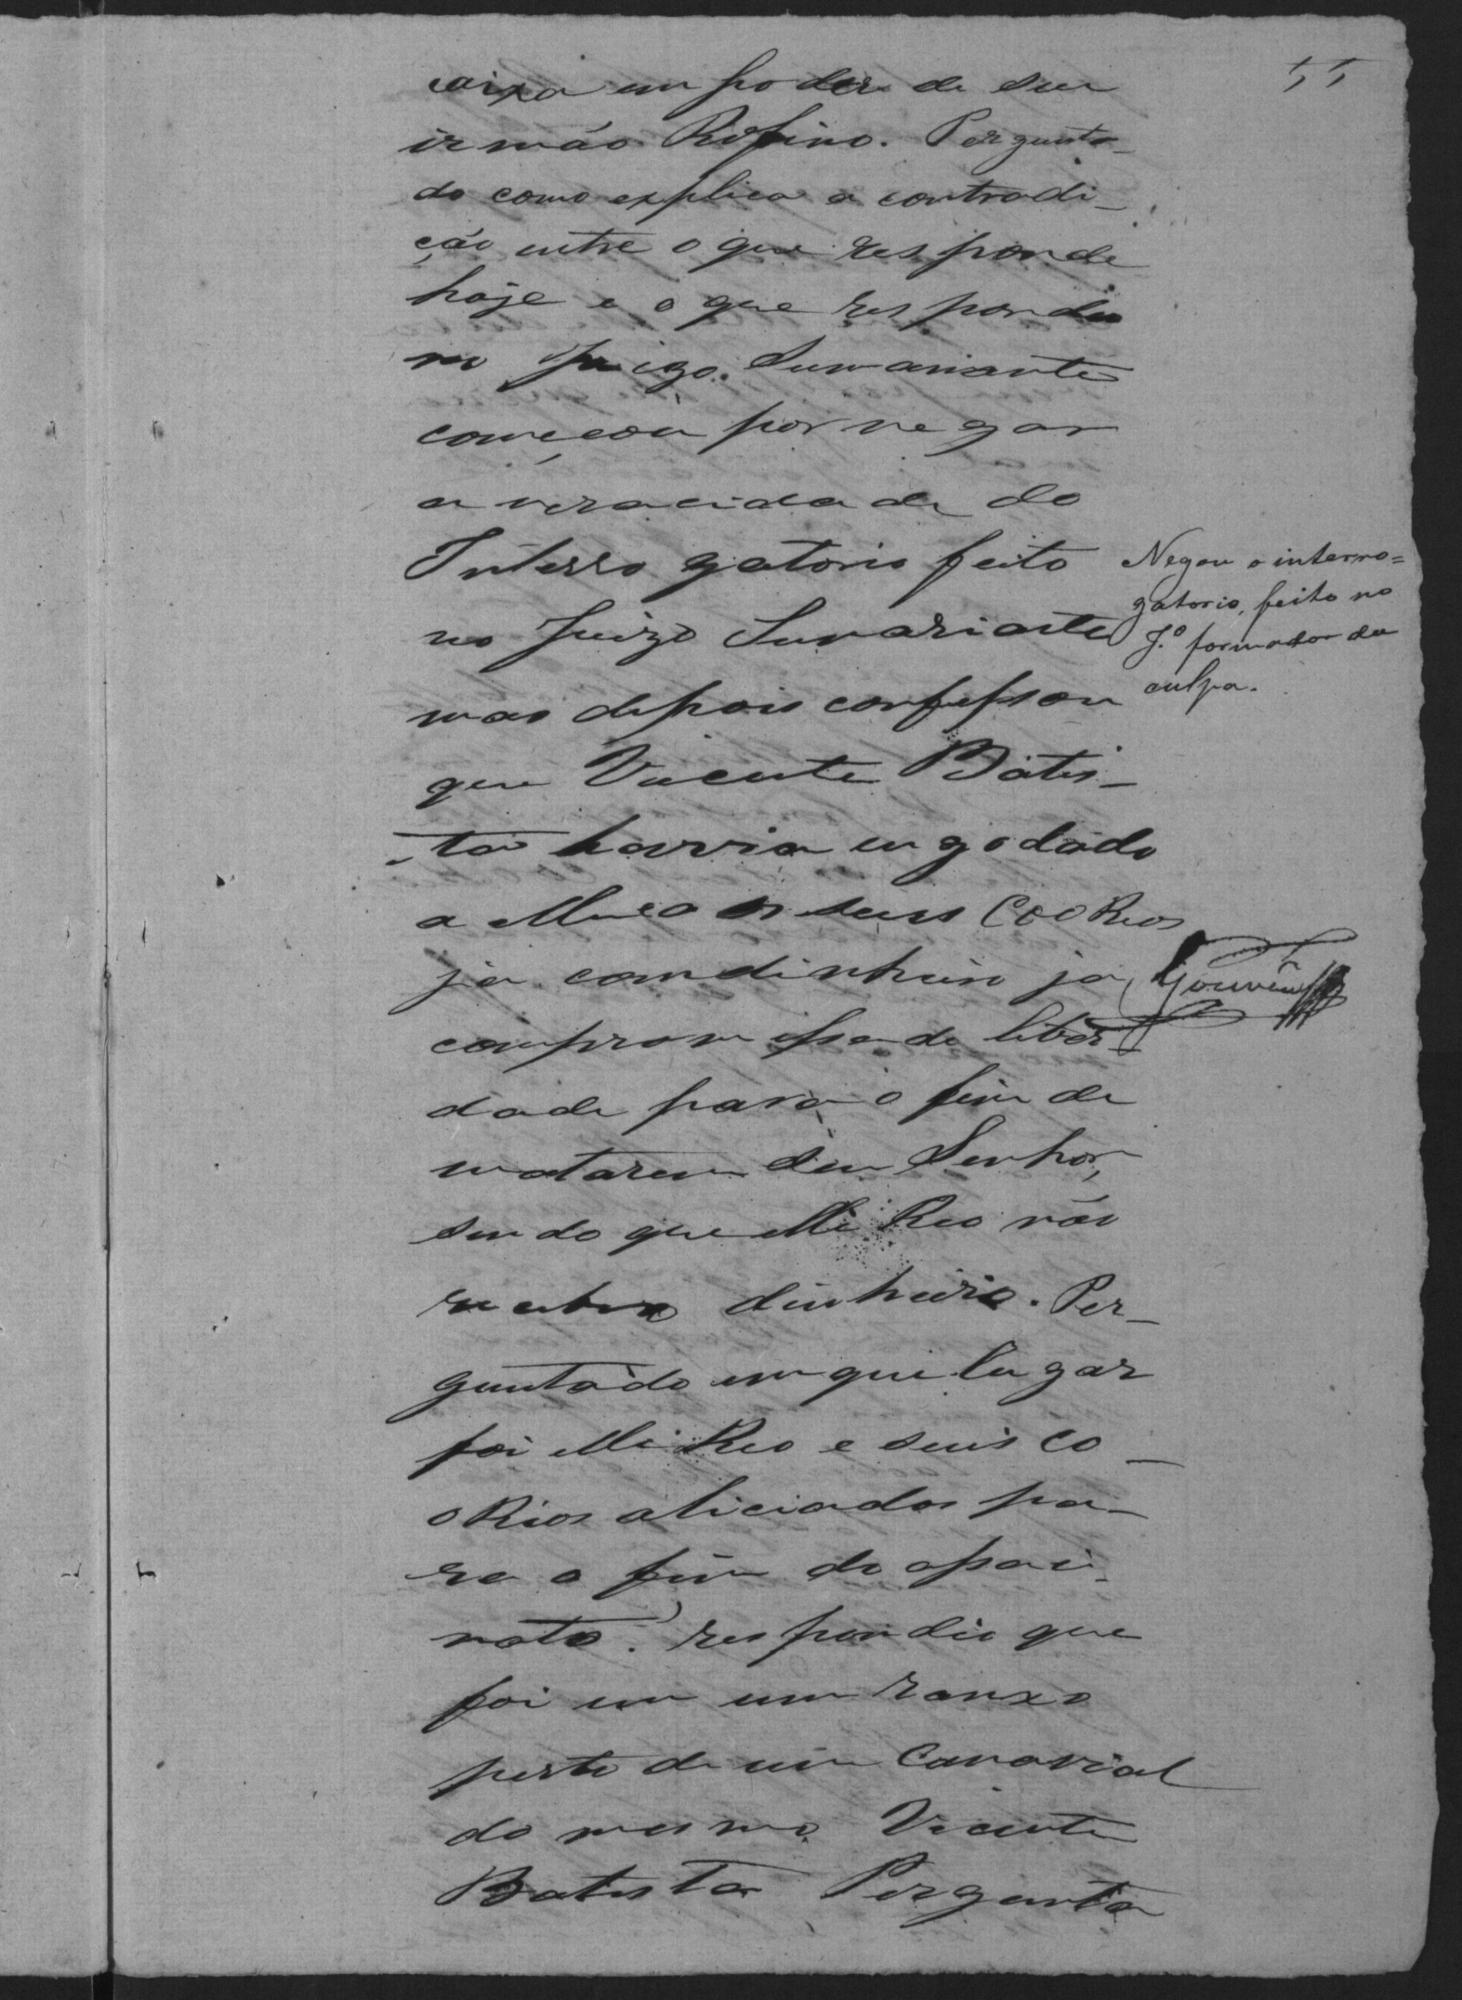 55
caixa em poder de seu
irmão Rofino. Pergunta-
do como explica a contradi-
ção entre o que responde
hoje e o que respondeu
no Juizo Sumariante
começou por negar
a veracidade do
Interrogatorio feito
no Juizo Sumariante
mas depois confessou
que Vicente Batis-
ta havia engodado
a elle e os seus Coo Reos
ja com dinheiro ja
com promessa de liber-
dade para o fim de
matarem seu Senhor,
sendo que elle Reo não
recebeo dinheiro. Per-
guntado em que lugar
foi elle Reo e seus co-
o Reos aliciados pa-
ra o fim do assaci-
nato? respondeo que
foi em um ranxo
perto de um Canavial
do mesmo Vicente
Batista Pergunta
Negou o interro=
gatorio, feito no
J.º formador da
culpa.
Gouvêa